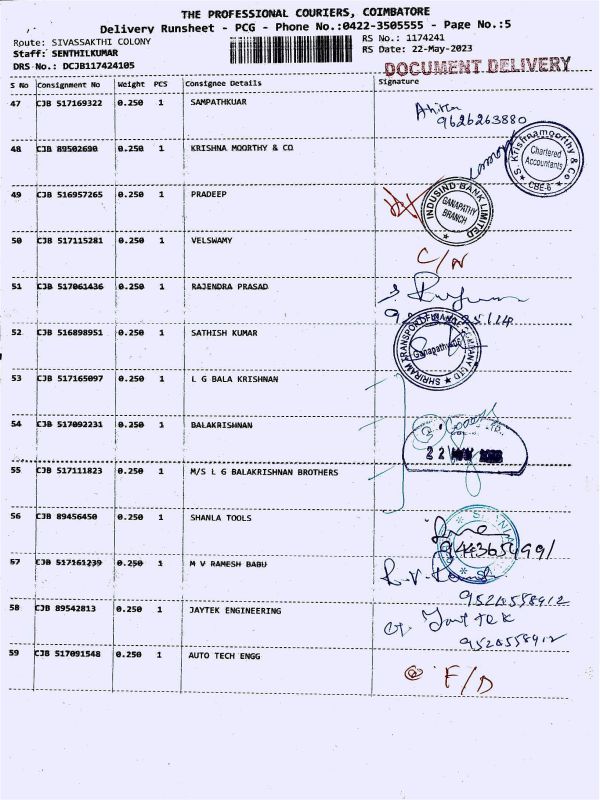 THE PROFESSIONAL COURIERS, COIMBATORE
Delivery Runsheet - PCG - Phone No.:0422-3505555 - Page No.:5
Route: SIVASSAKTHI COLONY RS No.: 1174241
Staff: SENTHILKUMAR RS Date: 22-May-2023
DRS No.: DCJB117424105 DOCUMENT DELIVERY
S No Consignment No Weight PCS Consignee Details Signature
47 CJB 517169322 0.250 1 SAMPATHKUAR
9626263880
48 CJB 89502690 0.250 1 KRISHNA MOORTHY & CO
S. Krishnamoorthy & Co
Chartered
Accountants
CBE-6
49 CJB 516957265 0.250 1 PRADEEP
INDUSIND BANK LIMITED
GANAPATHY
BRANCH
50 CJB 517115281 0.250 1 VELSWAMY
C/N
51 CJB 517061436 0.250 1 RAJENDRA PRASAD
52 CJB 516898951 0.250 1 SATHISH KUMAR
SHRIRAM TRANSPORT FINANCE COMPANY LTD
Ganapathy
53 CJB 517165097 0.250 1 L G BALA KRISHNAN
54 CJB 517092231 0.250 1 BALAKRISHNAN
22 MAY 2023
55 CJB 517111823 0.250 1 M/S L G BALAKRISHNAN BROTHERS
56 CJB 89456450 0.250 1 SHANLA TOOLS
9443654991
57 CJB 517161239 0.250 1 M V RAMESH BABU
9524558912
58 CJB 89542813 0.250 1 JAYTEK ENGINEERING
9524558912
59 CJB 517091548 0.250 1 AUTO TECH ENGG
@ F/D